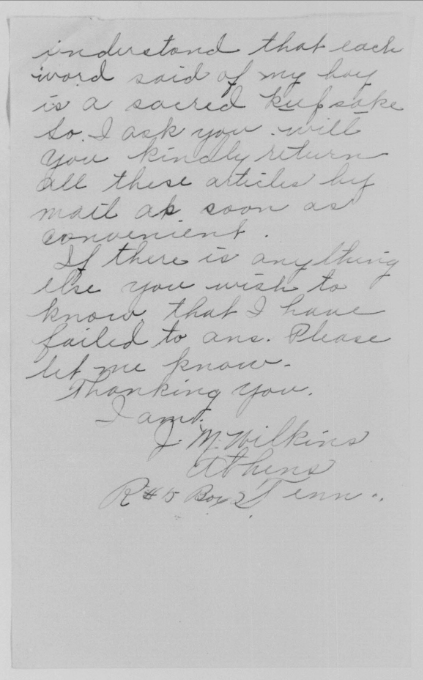 understand that each
word said of my boy
is a sacred keepsake
So. I ask you will
you kindly return
all these articles by
mail as soon as
convenient.
If there is anything
else you wish to
know that I have
failed to ans. Please
let me know.
Thanking you.
I am.
J M. Wilkins
Athens
R#5 Box 2 Tenn.